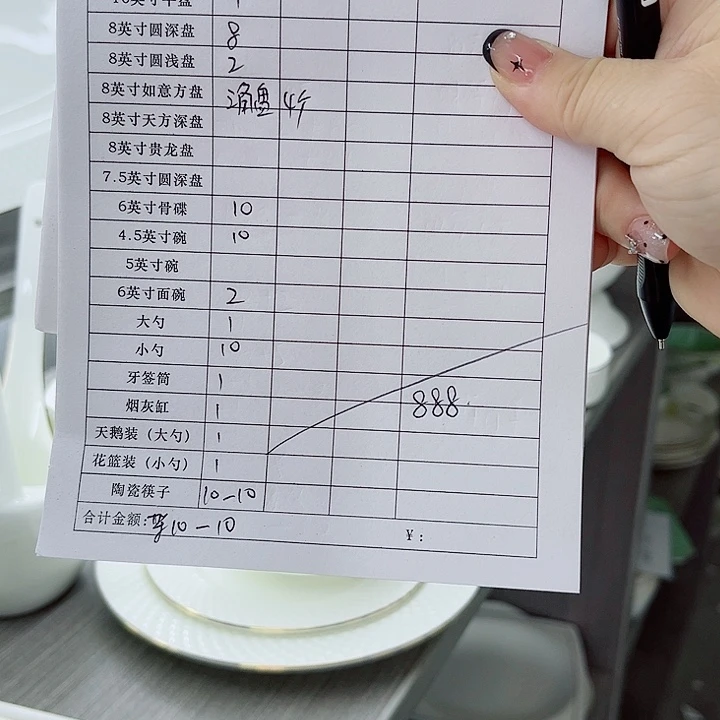 8英寸圆深盘 8
8英寸圆浅盘 2
8英寸如意方盘
8英寸天方深盘
8英寸贵龙盘
7.5英寸圆深盘
6英寸骨碟 10
4.5英寸碗 10
5英寸碗
6英寸面碗 2
大勺 1
小勺 10
牙签筒 1
烟灰缸 1 888
天鹅装（大勺） 1
花篮装（小勺） 1
陶瓷筷子 10-10
合计金额: 10-10 ¥: